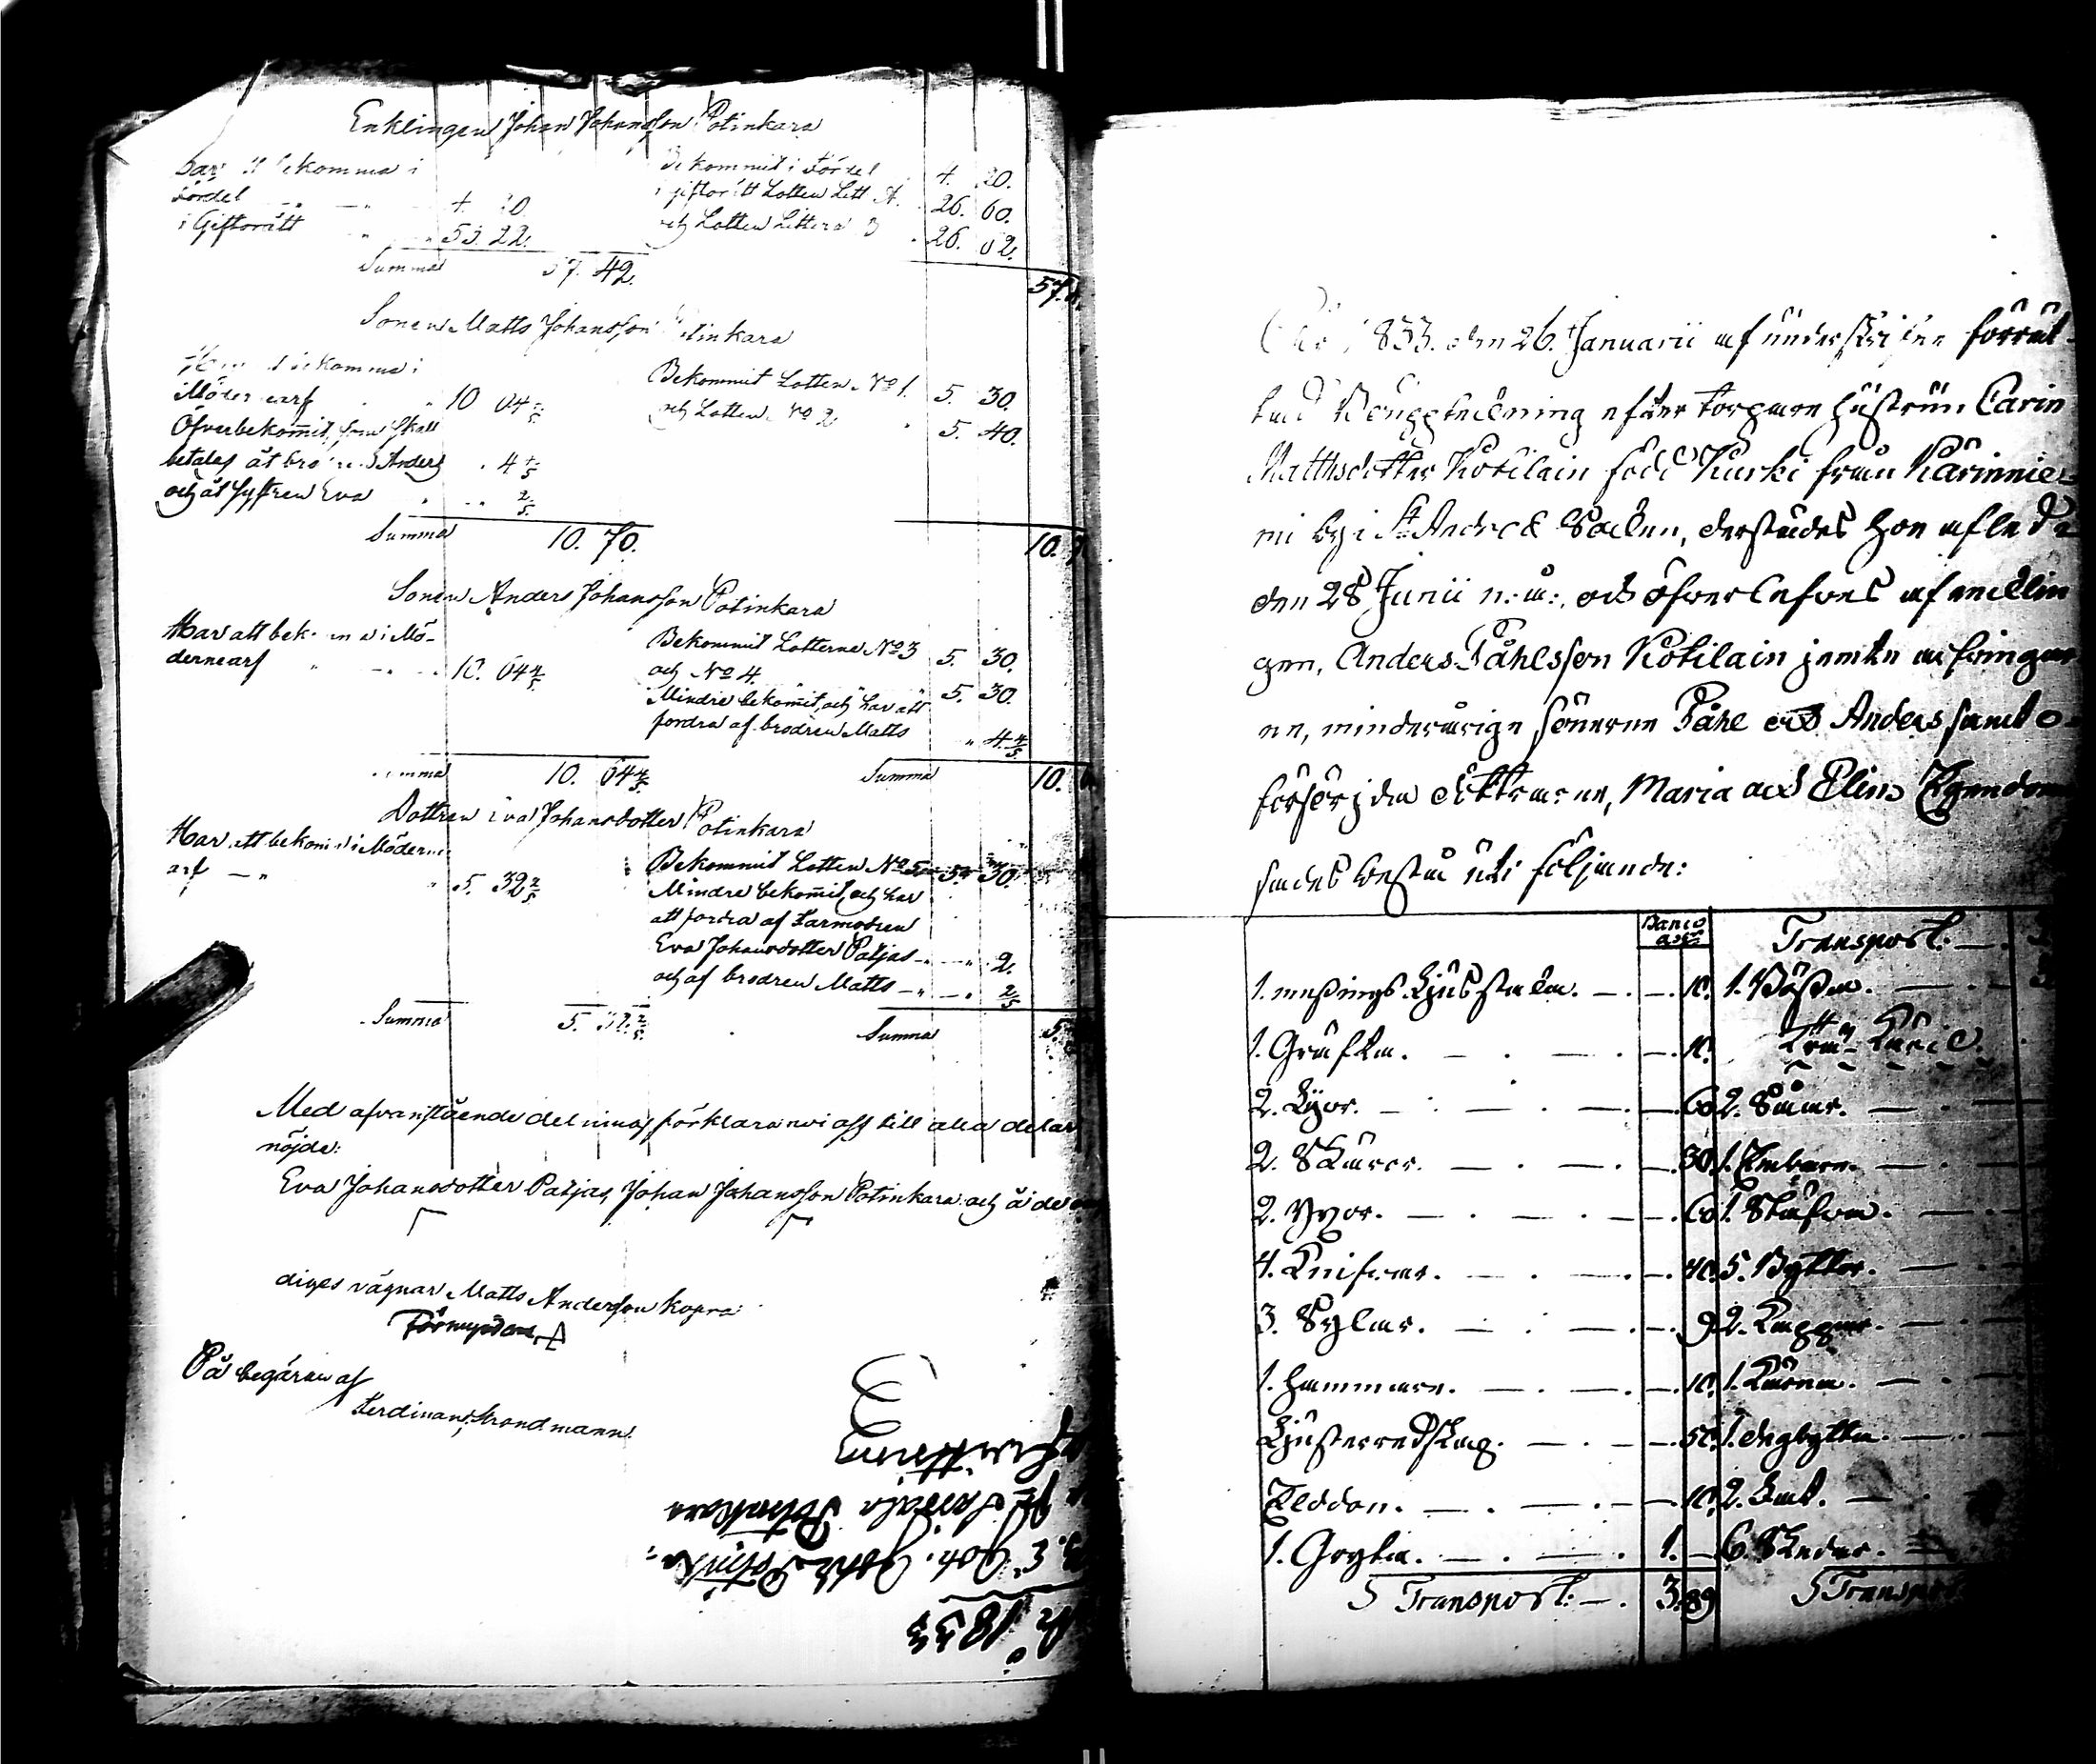 Enklingen Johan Johansson Potinkara
Har att bekomma i
Fördel 4. 20
i Giftorätt 53. 22.
Summa 57. 42.
Bekommit i Fördel 4. 20.
i giftorätt Lotten Litt A. 26. 60.
och Lotten Littera B 26. 62.
57.
Sonen Matts Johansson Potinkara
Har att bekomma i
Möderne arf 10 64 4/5
Öfverbekommit, som skall
betales åt brodren Anders 4 4/5
och åt systren Eva 2/5
Summa 10. 70.
Bekommit Lotten No 1. 5. 30.
och Lotten No 2 5. 40.
10. 7
Sonen Anders Johansson Potinkara
Har att bekomma i Mö-
derne arf 10. 64 4/5
Bekommit Lotterne No 3 5. 30.
och No 4. 5. 30.
Mindre bekommit, och har att
fordra af brodren Matts 4 4/5
Summa 10. 64 4/5
Summa 10.
Dottren Eva Johansdotter Potinkara
Har att bekomma i Möderne
arf 5. 32 2/5
Bekommit Lotten No 5 5. 30.
Mindre bekommit, och har
att fordra af Farmodren
Eva Johansdotter Patjas 2.
och af brodren Matts 2/5
Summa 5. 32 2/5
Summa 5.
Med ofvanstående delning förklara wi oss till alla delar
nöjde:
Eva Johansdotter Patjas, Johan Johansson Potinkara och å de
diges vägnar Matts Andersson Kopra
Förmyndare
På begäran af
Ferdinand Strandmann.
År 1833
Potinkara
År 1833. den 26. Januarii af underskrifne förrät-
tad Bouppteckning efter torpare hustrun Carin
Matthsdotter Kotilain född Kurki från Kärinnie-
mi by i St Andreæ Socken, derstädes hon afled
den 28 Junii n: å:, och öfverlefves af encklin
gen, Anders Påhlsson Kotilain jemte arfvingar
ne, minderårige sönerne Påhl och Anders samt o-
försörjda döttrarne, Maria och Elin. Egendomen
sades bestå uti följande:
Banco
Transport.
1. messings Ljusstaka. 10.
1. Gräfta. 10.
2. Lijor. 60
2. Skäror. 30
2. Yxor. 60
4. Knifvar. 40
3. Sylar. 9
1. Hammare. 10.
Ljusterredskap. 50.
Elddon. 10.
1. Gryta. 1.
Transport. 3. 89
1. Bössa.
Trä Kärl
2. Såar.
1. Embare.
1. Stäfva.
5. Byttor.
2. Kappar.
1. Kärna.
1. degbytta.
2. Fat.
6. Skedar.
Transport